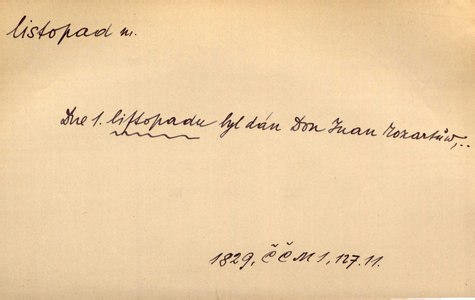 listopad m.
Dne 1. liſtopadu byl dán Don Juan Mozartůw,..
1829, ČČM 1, 127.11.